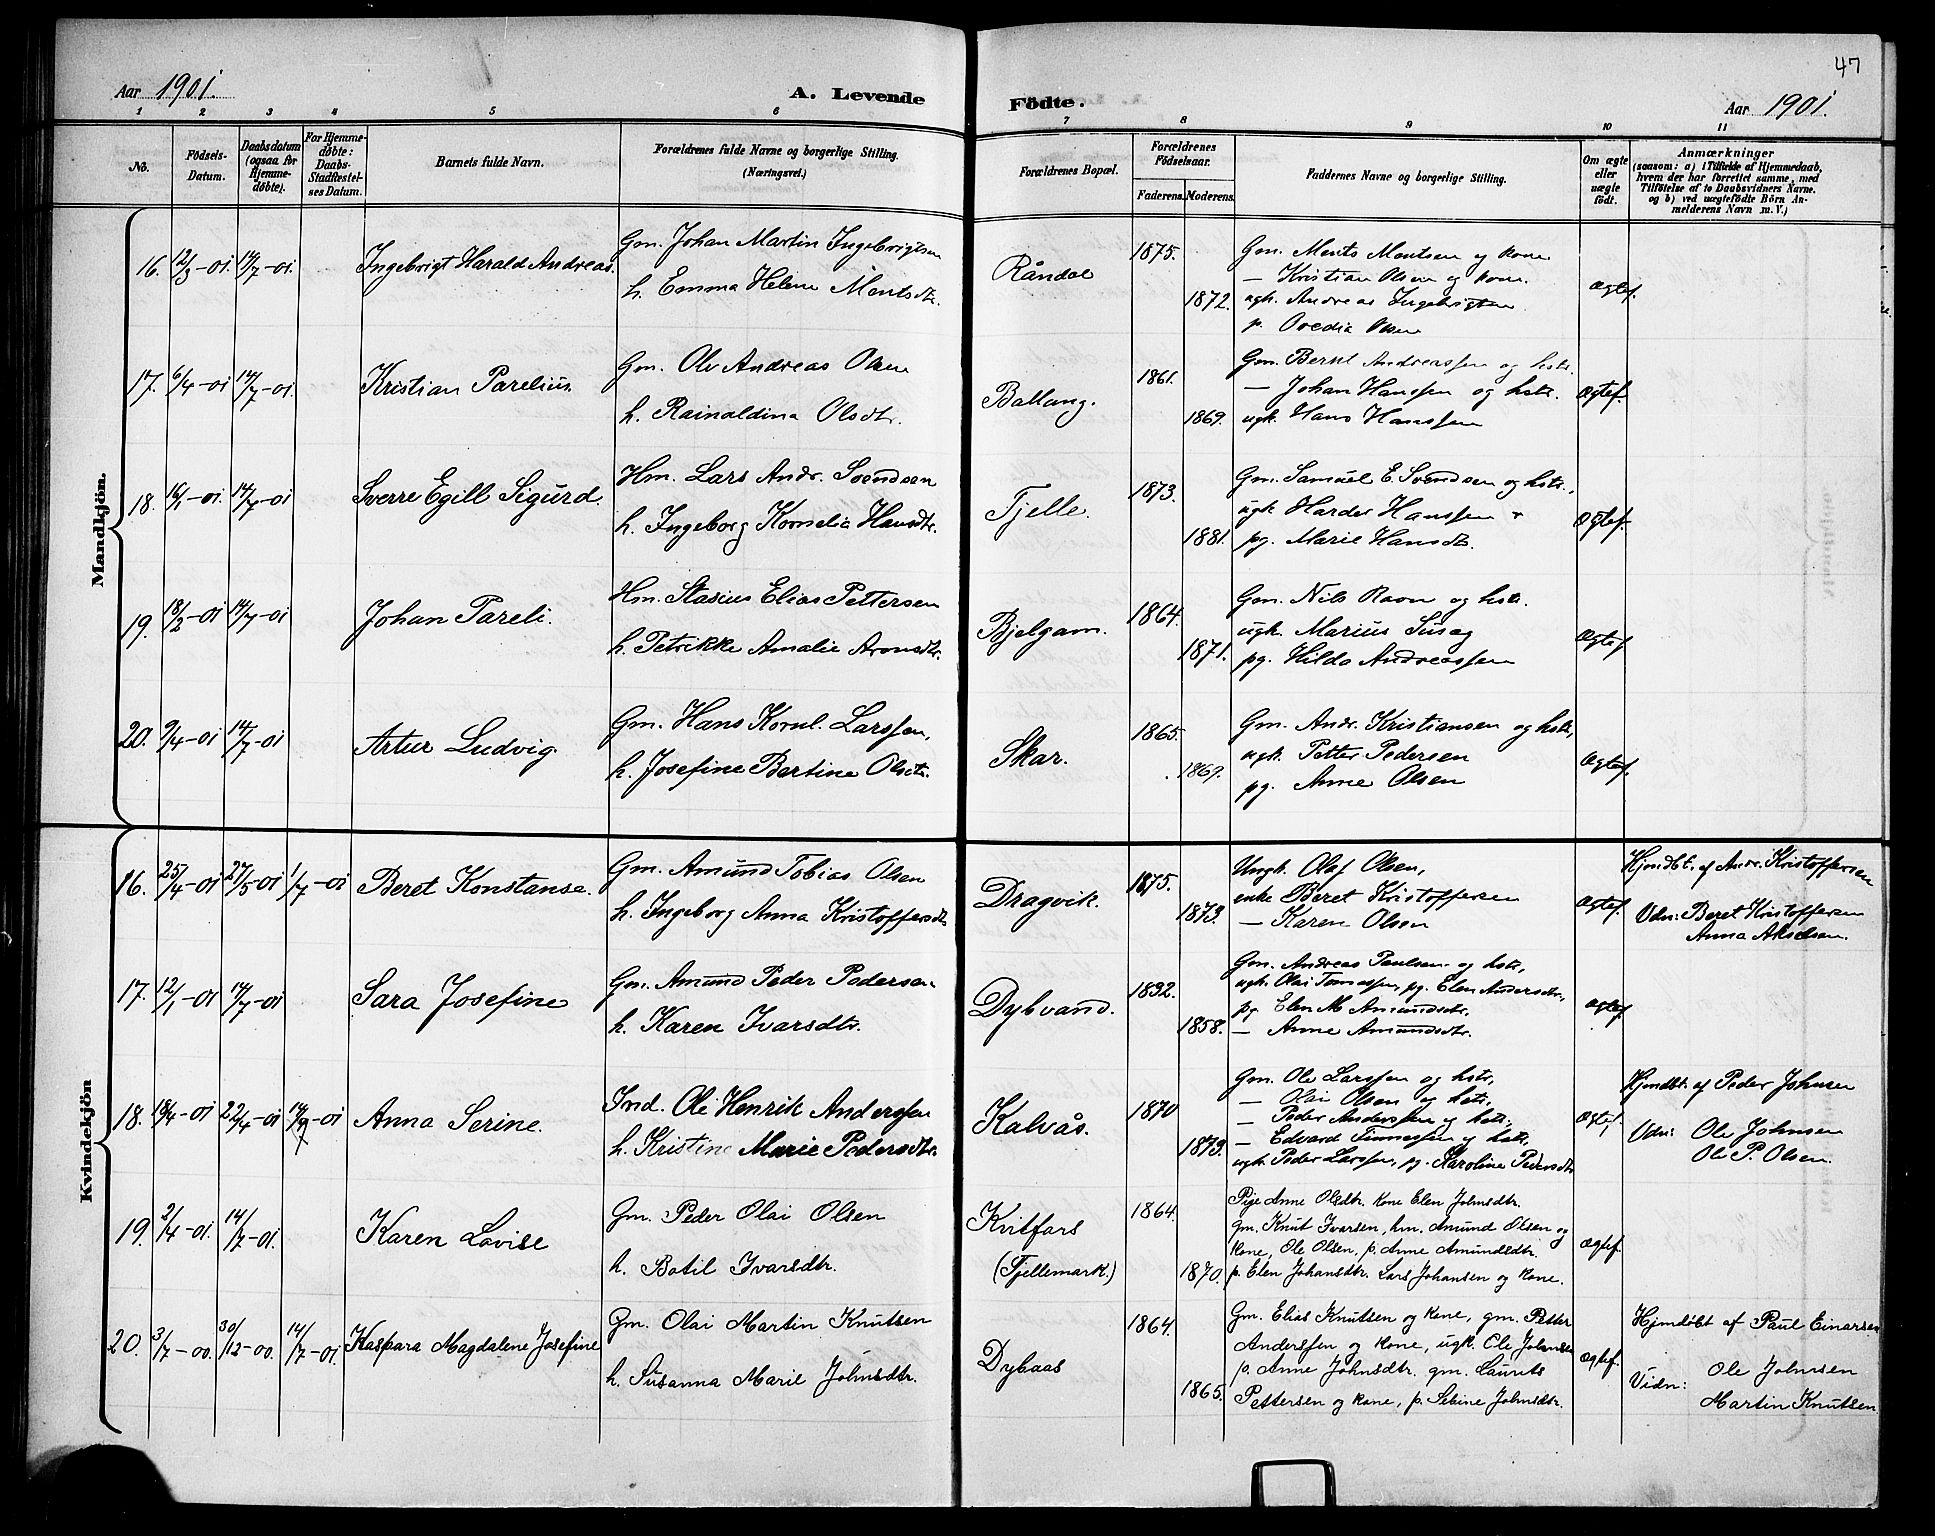 47
Aar 1901.
A. Levende
Födte.
Aar 1901.
1 2 3 4 5 6
7 8 9 10 11
No.
Födsels-
Datum.
Daabsdatum
(ogsaa for
Hjemme-
døbte).
For Hjemme-
døbte:
Daabs-
Stadfæstel-
ses Datum.
Barnets fulde Navn.
Forældrenes fulde Navne og borgerlige Stilling.
(Næringsvei.)
Forældrenes Bopæl.
Forældrenes
Födselsaar.
Faderens. Moderens.
Faddernes Navne og borgerlige Stilling.
Om ægte
eller
uægte
født.
Anmærkninger
(saasom: a) i Tilfælde af Hjemmedaab,
hvem der har forrettet samme, med
Tilføielse af to Daabsvidners Navne.
og b) ved uægtefödte Börn An-
melderens Navn m. V.)
Mandkjön.
16. 12/3-01. 14/7-01. Ingebrigt Harald Andreas.
Gm. Johan Martin Ingebrigtsen
h. Emma Helene Montsdtr.
Råndal
1875.
1872.
Gm. Monts Montsen og kone.
— Kristian Olsen og kone.
ugk. Andreas Ingebrigtsen
p. Ovedia Olsen
Ægtef.
17. 6/4-01 14/7-01. Kristian Parelius.
Gm. Ole Andreas Olsen
h. Rainoldina Olsdtr.
Ballang.
1861.
1869.
Gm. Bernt Andreassen og hstr.
— Johan Hanssen og hstr.
ugk. Hans Hanssen
Ægtef.
18. 16/1-01. 14/7-01 Sverre Egill Sigurd.
Hm. Lars Andr. Svendsen
h. Ingeborg Kornelia Hansdtr.
Fjelle.
1873.
1881.
Gm. Samuel E. Svendsen og hstr.,
ugk. Harder Hanssen
pg. Marie Hansdtr.
Ægtef.
19. 18/2-01 14/7-01 Johan Pareli.
Hm. Stasius Elias Pettersen
h. Petrikke Amalie Aronsdtr.
Bjelgam.
1864.
1871.
Gm. Nils Ravn og hstr.
ugk. Marius Susag
pg. Hilda Andreassen
Ægtef.
20. 9/4-01 14/7-01 Artur Ludvig.
Gm. Hans Kornl. Larssen,
h. Josefine Bertine Olsdtr.
Skar.
1865.
1869.
Gm. Andr. Kristiansen og hstr,
ugk. Petter Pedersen
pg. Anne Olsen
Ægtef.
Kvindekjön
16. 25/4-01 27/5-01 1/7-01 Beret Konstanse.
Gm. Amund Tobias Olsen
h. Ingeborg Anna Kristoffersdtr.
Dragvik.
1875.
1873.
Ungk. Olaf Olsen,
enke Beret Kristoffersen
— Karen Olsen
Ægtef.
Hjmdbt. af Andr. Kristoffersen
Vdn: Beret Kristoffersen
Anna Akselsen.
17. 12/1-01 14/7-01 Sara Josefine
Gm. Amund Peder Pedersen.
h. Karen Ivarsdtr.
Dybvand.
1832.
1858.
Gm. Andreas Paulsen og hstr,
ugk. Olai Tomassen, pg. Elen Andersdtr,
pg. Elen M Amundsdtr.
— Anne Amundsdtr.
Ægtef.
18. 18/4-01 22/4-01 14/7-01 Anna Serine.
Ind. Ole Henrik Anderssen
h. Kristine Marie Pedersdtr.
Kalvås.
1870
1873.
Gm. Ole Larssen og hstr,
— Olai Olsen og hstr,
— Peder Anderssen og hstr.
— Edvard Tinnessen og hstr,
ugk. Peder Larssen, pg. Karoline Pedersdtr
Ægtef.
Hjmdbt. af Peder Johnsen
Vdn: Ole Johnsen
Ole P. Olsen.
19. 2/4-01. 14/7-01. Karen Lovise
Gm. Peder Olai Olsen
h. Botil Ivarsdtr.
Kvitfors
(Fjellemark.)
1864.
1870.
Pige Anne Olsdtr. kone Elen Johnsdtr.
gm. Knut Ivarsen, hm. Amund Olsen og
kone, Ole Olsen, p. Anne Amundsdtr.
p. Elen Johansdtr. Lars Johansen og kone.
Ægtef.
20. 3/7-00. 30/12-00. 14/7-01. Kaspara Magdalene Josefine
Gm. Olai Martin Knutsen
h. Susanna Marie Johnsdtr.
Dybaas
1864.
1865.
Gm. Elias Knutsen og kone, gm. Petter
Anderssen og kone, ugk. Ole Johnsen
p. Anne Johnsdtr. gm. Laurits
Pettersen og kone, p. Sebine Johnsdtr.
Ægtef.
Hjemdöbt af Paul Einarsen
Vidn: Ole Johnsen
Martin Knutsen.